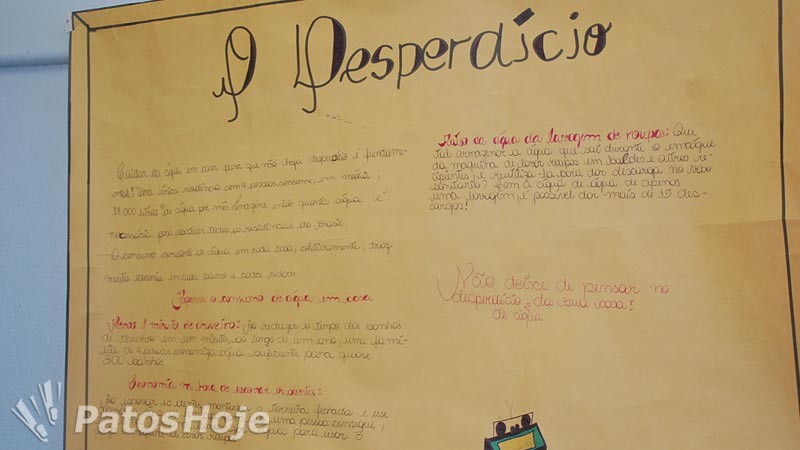 O Desperdício
Cuidar da água em casa para que não haja desperdício é fundame-
ntal! Uma única residência com 4 pessoas consome, em média,
18.000 litros de água por mês. Imagine então quanta água é
necessária para abastecer todas as residências do Brasil.
O consumo consciente de água em sua casa, coletivamente, traz
muita economia em seu bairro e toda cidade.
Reduza o consumo de água em casa
Menos 1 minuto de chuveiro: Ao reduzir o tempo dos banhos
de chuveiro em um minuto, ao longo de um ano, uma famí-
lia de 4 pessoas economiza água suficiente para quase
300 banhos.
Economia na hora de escovar os dentes:
Ao escovar os dentes mantenha a torneira fechada e use
uma pessoa consegue,
água para usar 3
Reúso da água da lavagem de roupas: Que
tal armazenar a água que sai durante o enxágue
da máquina de lavar roupas em baldes e outros re-
cipientes, e reutilizá-la para dar descarga no vaso
sanitário? Com a água de água de apenas
uma lavagem, é possível dar mais de 15 des-
cargas!
Não deixe de pensar no
desperdício da sua casa!
de água
PatosHoje